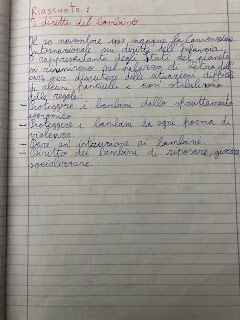 Riassunto:
I diritti del bambino
Il 20 novembre nacque la Convenzione
Internazionale sui diritti dell'infanzia
I rappresentanti degli Stati del pianeta
si riunirono nel palazzo di vetro
per discutere delle situazioni difficili
di alcuni fanciulli e così stabilirono
delle regole:
- Proteggere i bambini dallo sfruttamento
economico
- Proteggere i bambini da ogni forma di
violenza.
- Dare un'istruzione ai bambini.
- Diritto dei bambini di riposare, giocare
socializzare.